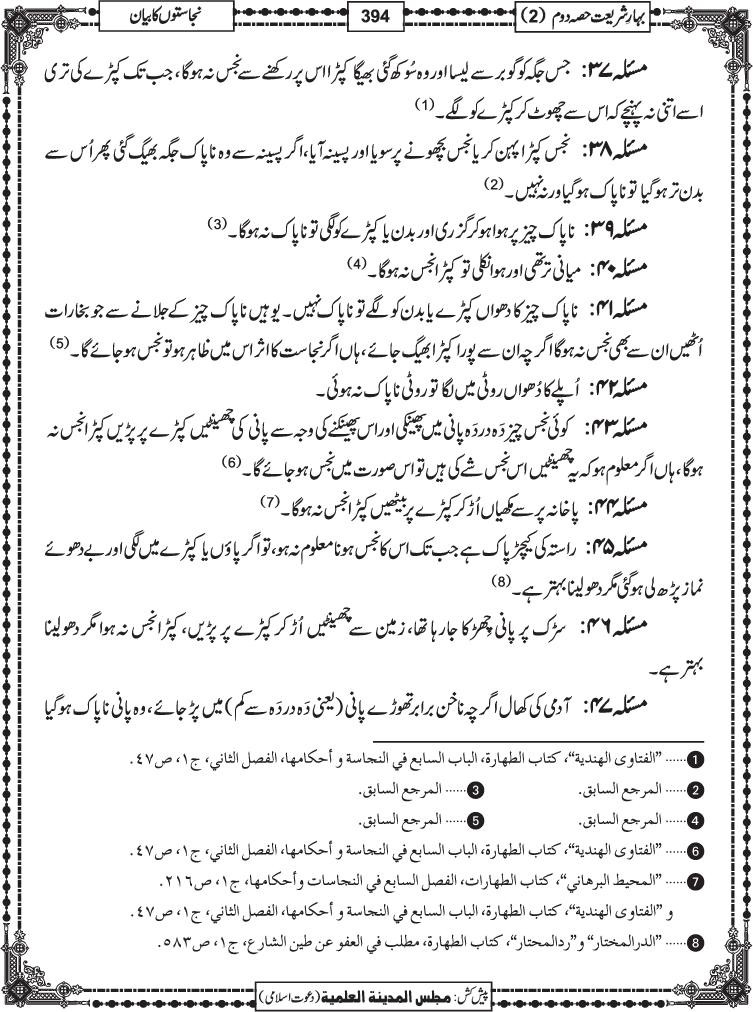 بہارِ شریعت حصہ دوم (2)
394
نجاستوں کا بیان
مسئلہ ۳۷: جس جگہ کو گوبر سے لیسا اور وہ سُوکھ گئی بھیگا کپڑا اس پر رکھنے سے نجس نہ ہوگا، جب تک کپڑے کی تری
اسے اتنی نہ پہنچے کہ اس سے چھوٹ کر کپڑے کو لگے۔ (1)
مسئلہ ۳۸: نجس کپڑا پہن کر یا نجس بچھونے پر سویا اور پسینہ آیا، اگر پسینہ سے وہ ناپاک جگہ بھیگ گئی پھر اُس سے
بدن تر ہوگیا تو ناپاک ہوگیا ورنہ نہیں۔ (2)
مسئلہ ۳۹: ناپاک چیز پر ہوا ہو کر گزری اور بدن یا کپڑے کو لگی تو ناپاک نہ ہوگا۔ (3)
مسئلہ ۴۰: میانی تر تھی اور ہوا نکلی تو کپڑا نجس نہ ہوگا۔ (4)
مسئلہ ۴۱: ناپاک چیز کا دھواں کپڑے یا بدن کو لگے تو ناپاک نہیں۔ یوہیں ناپاک چیز کے جلانے سے جو بخارات
اُٹھیں ان سے بھی نجس نہ ہوگا اگرچہ ان سے پورا کپڑا بھیگ جائے، ہاں اگر نجاست کا اثر اس میں ظاہر ہو تو نجس ہو جائے گا۔ (5)
مسئلہ ۴۲: اُپلے کا دُھواں روٹی میں لگا تو روٹی ناپاک نہ ہوئی۔
مسئلہ ۴۳: کوئی نجس چیز دَہ دردَہ پانی میں پھینکی اور اس پھینکنے کی وجہ سے پانی کی چھینٹیں کپڑے پر پڑیں کپڑا نجس نہ
ہوگا، ہاں اگر معلوم ہو کہ یہ چھینٹیں اس نجس شے کی ہیں تو اس صورت میں نجس ہو جائے گا۔ (6)
مسئلہ ۴۴: پاخانہ پر سے مکھیاں اُڑ کر کپڑے پر بیٹھیں کپڑا نجس نہ ہوگا۔ (7)
مسئلہ ۴۵: راستہ کی کیچڑ پاک ہے جب تک اس کا نجس ہونا معلوم نہ ہو، تو اگر پاؤں یا کپڑے میں لگی اور بے دھوئے
نماز پڑھ لی ہوگئی مگر دھو لینا بہتر ہے۔ (8)
مسئلہ ۴۶: سڑک پر پانی چِھڑکا جا رہا تھا، زمین سے چھینٹیں اُڑ کر کپڑے پر پڑیں، کپڑا نجس نہ ہوا مگر دھو لینا
بہتر ہے۔
مسئلہ ۴۷: آدمی کی کھال اگرچہ ناخن برابر تھوڑے پانی (یعنی دَہ دردَہ سے کم) میں پڑ جائے، وہ پانی ناپاک ہوگیا
1 ...... "الفتاوی الهندية"، كتاب الطهارة، الباب السابع في النجاسة و أحكامها، الفصل الثاني، ج١، ص٤٧.
2 ...... المرجع السابق. 3 ...... المرجع السابق.
4 ...... المرجع السابق. 5 ...... المرجع السابق.
6 ...... "الفتاوی الهندية"، كتاب الطهارة، الباب السابع في النجاسة و أحكامها، الفصل الثاني، ج١، ص٤٧.
7 ...... "المحيط البرهاني"، كتاب الطهارات، الفصل السابع في النجاسات وأحكامها، ج١، ص٢١٦.
و "الفتاوی الهندية"، كتاب الطهارة، الباب السابع في النجاسة و أحكامها، الفصل الثاني، ج١، ص٤٧.
8 ...... "الدرالمختار" و"ردالمحتار"، كتاب الطهارة، مطلب في العفو عن طين الشارع، ج١، ص٥٨٣.
پیش کش: مجلس المدينة العلمية (دعوت اسلامی)